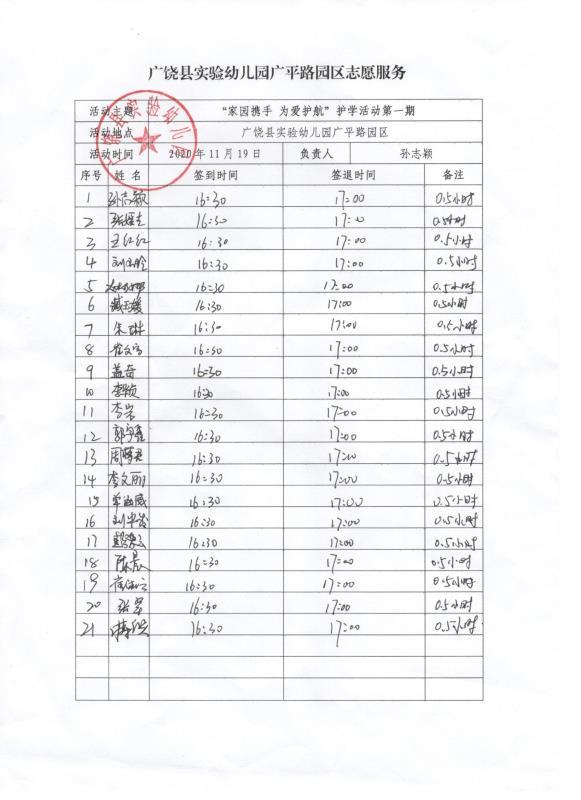 广饶县实验幼儿园广平路园区志愿服务
活动主题 “家园携手 为爱护航”护学活动第一期
活动地点 广饶县实验幼儿园广平路园区
活动时间 2020年11月19日 负责人 孙志颖
序号 姓名 签到时间 签退时间 备注
1 孙志颖 16:30 17:00 0.5小时
2 16:30 17:00 0.5小时
3 王红红 16:30 17:00 0.5小时
4 16:30 17:00 0.5小时
5 16:30 17:00 0.5小时
6 16:30 17:00 0.5小时
7 朱琳 16:30 17:00 0.5小时
8 崔文 16:30 17:00 0.5小时
9 盖奇 16:30 17:00 0.5小时
10 16:30 17:00 0.5小时
11 李岩 16:30 17:00 0.5小时
12 16:30 17:00 0.5小时
13 16:30 17:00 0.5小时
14 李文丽 16:30 17:00 0.5小时
15 16:30 17:00 0.5小时
16 16:30 17:00 0.5小时
17 16:30 17:00 0.5小时
18 陈晨 16:30 17:00 0.5小时
19 16:30 17:00 0.5小时
20 张翠 16:30 17:00 0.5小时
21 16:30 17:00 0.5小时